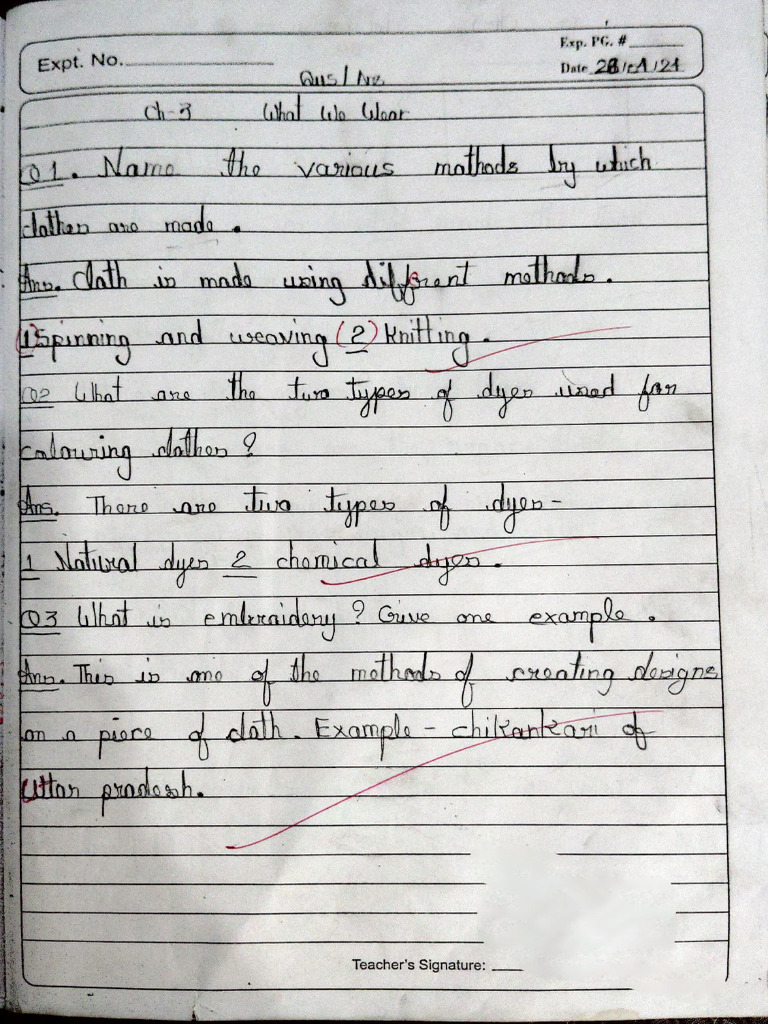 Exp. PG. #
Expt. No.
Date
Qus/Ans
Ch-3 What We Wear
Q1. Name the various methods by which
clothes are made.
Ans. Cloth is made using different methods.
(1) Spinning and weaving (2) Knitting.
Q2 What are the two types of dyes used for
colouring clothes?
Ans. There are two types of dyes-
1 Natural dyes 2 chemical dyes.
Q3 What is embroidery? Give one example.
Ans. This is one of the methods of creating designs
on a piece of cloth. Example - chikankari of
Uttar pradesh.
Teacher's Signature: